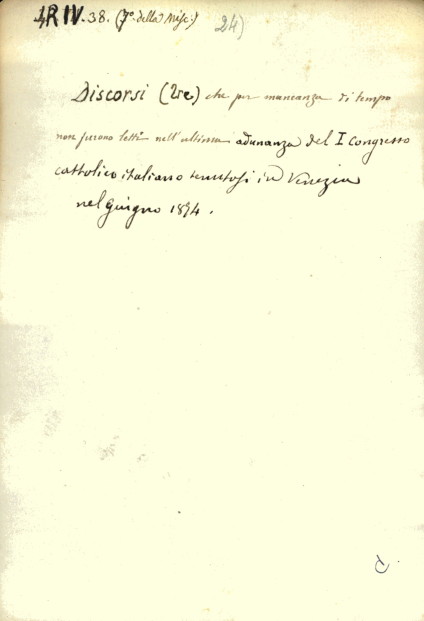 R IV. 38. (7º. della Misc.) 24)
Discorsi (tre) che per mancanza di tempo
non furono letti nell'ultima adunanza del I Congresso
cattolico italiano tenutosi in Venezia
nel giugno 1874.